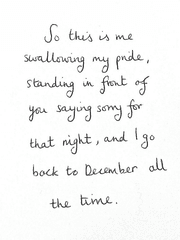 So this is me
swallowing my pride,
standing in front of
you saying sorry for
that night, and I go
back to December all
the time.